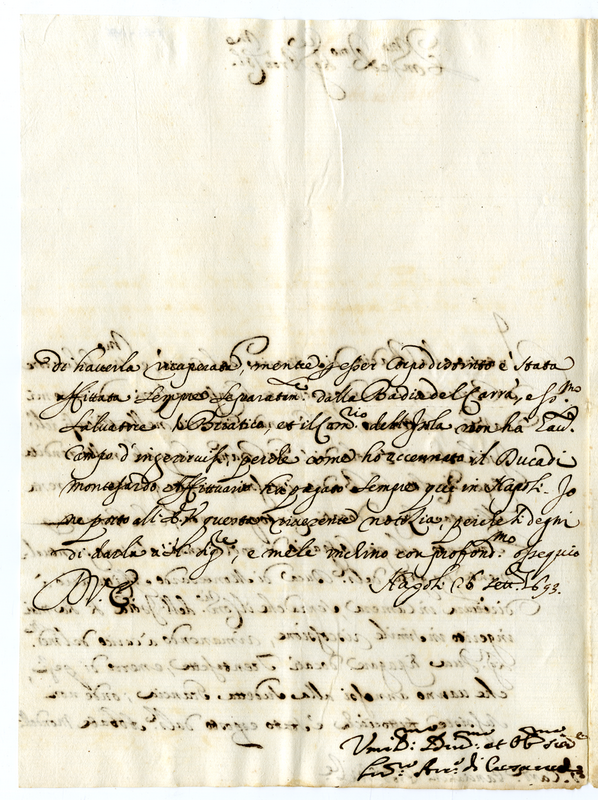 di haverla ricuperata, mentre p esser corpo distinto è stata
affittata sempre separatam.te dalla Badia del Carrà, e S.mo
Salvatore di Briatico, et il Com.rio dell'Isola non hà
campo d'ingerirvisi, perche come hò accennato il Duca di
montesardo Affittuario hà pagato sempre quì in Napoli. Io
ne porto all'E.V. questa riverente notitia, perche si degni
di darla a'
, e me le inchino con profond.mo ossequio
Napoli 26 Sett.re 1693.
D V. E.
Umil.mo Div.mo et Obb.mo Ser.e